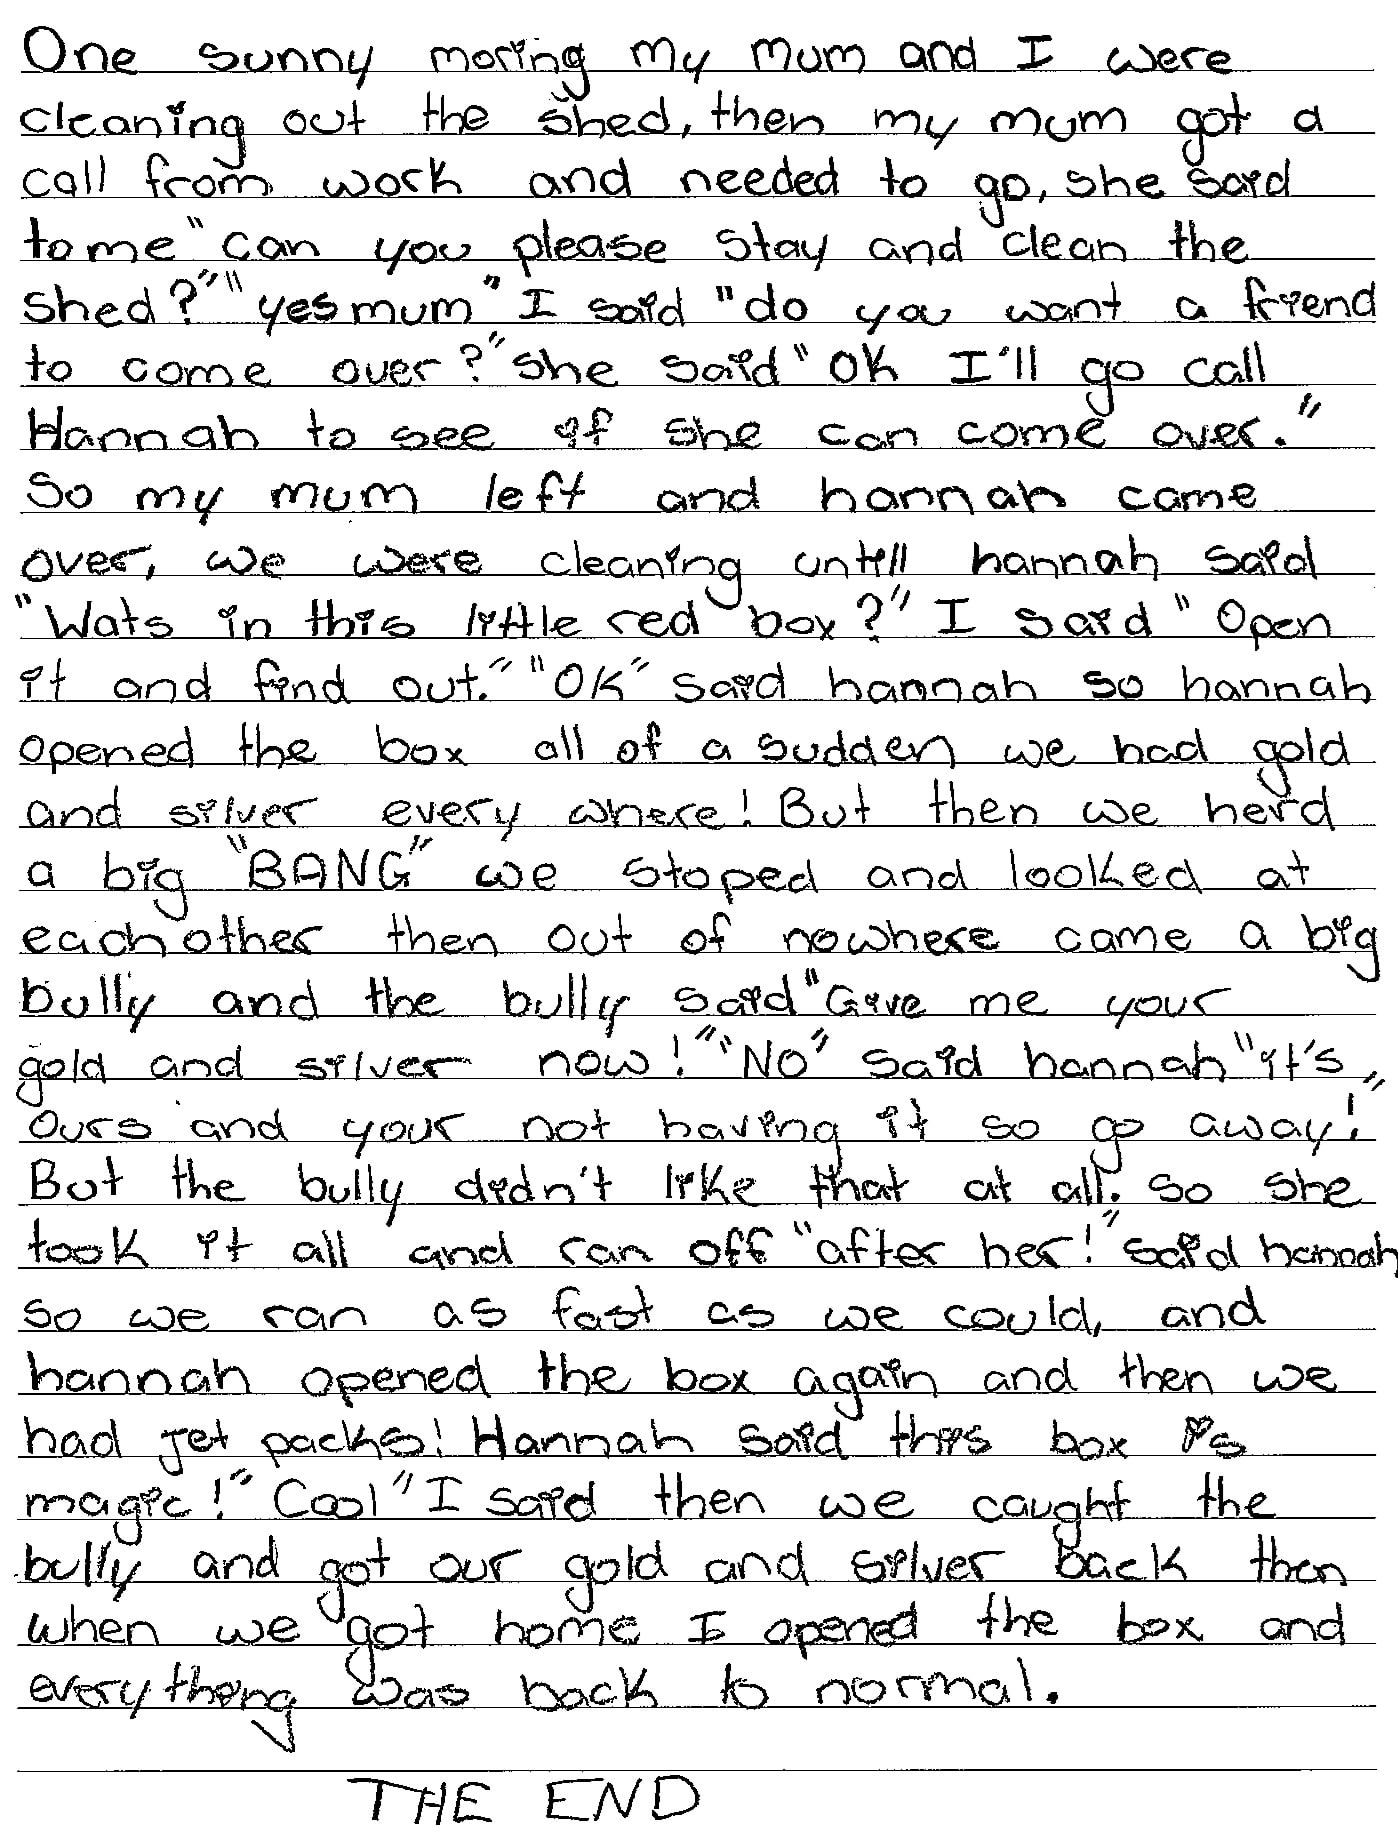 One sunny moring my mum and I were
cleaning out the shed, then my mum got a
call from work and needed to go, she said
to me "can you please stay and clean the
shed?" "yes mum" I said "do you want a friend
to come over?" she said "OK I'll go call
Hannah to see if she can come over."
So my mum left and hannah came
over, we were cleaning untill hannah said
"Wats in this little red box?" I said "Open
it and find out." "OK" said hannah so hannah
opened the box all of a sudden we had gold
and silver every where! But then we herd
a big "BANG" we stoped and looked at
each other then out of nowhere came a big
bully and the bully said "Give me your
gold and silver now!" "NO" said hannah "it's
ours and your not having it so go away!"
But the bully didn't like that at all. so she
took it all and ran off "after her!" said hannah
so we ran as fast as we could, and
hannah opened the box again and then we
had jet packs! Hannah said this box is
magic!" Cool" I said then we caught the
bully and got our gold and silver back then
when we got home I opened the box and
everything was back to normal.
THE END